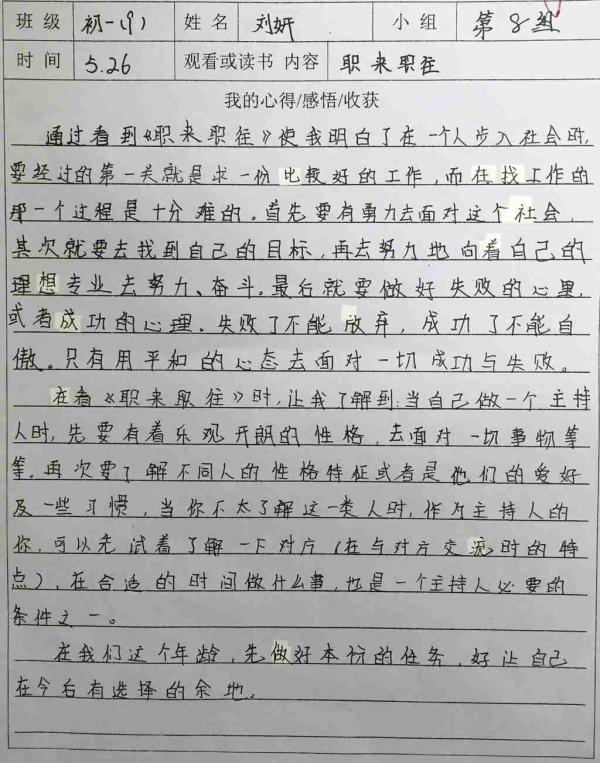 班级 初一(9) 姓名 刘妍 小组 第8组
时间 5.26 观看或读书内容 职来职往
我的心得/感悟/收获
通过看到《职来职往》使我明白了在一个人步入社会时,
要经过的第一关就是求一份比较好的工作,而在找工作的
那一个过程是十分难的。首先要有勇力去面对这个社会,
其次就要去找到自己的目标,再去努力地向着自己的
理想专业去努力、奋斗。最后就要做好失败的心里,
或者成功的心理。失败了不能放弃,成功了不能自
傲。只有用平和的心态去面对一切成功与失败。
在看《职来职往》时,让我了解到:当自己做一个主持
人时,先要有着乐观开朗的性格,去面对一切事物等
等。再次要了解不同人的性格特征或者是他们的爱好
及一些习惯,当你不太了解这一类人时,作为主持人的
你,可以先试着了解一下对方(在与对方交流时的特
点),在合适的时间做什么事,也是一个主持人必要的
条件之一。
在我们这个年龄,先做好本份的任务,好让自己
在今后有选择的余地。